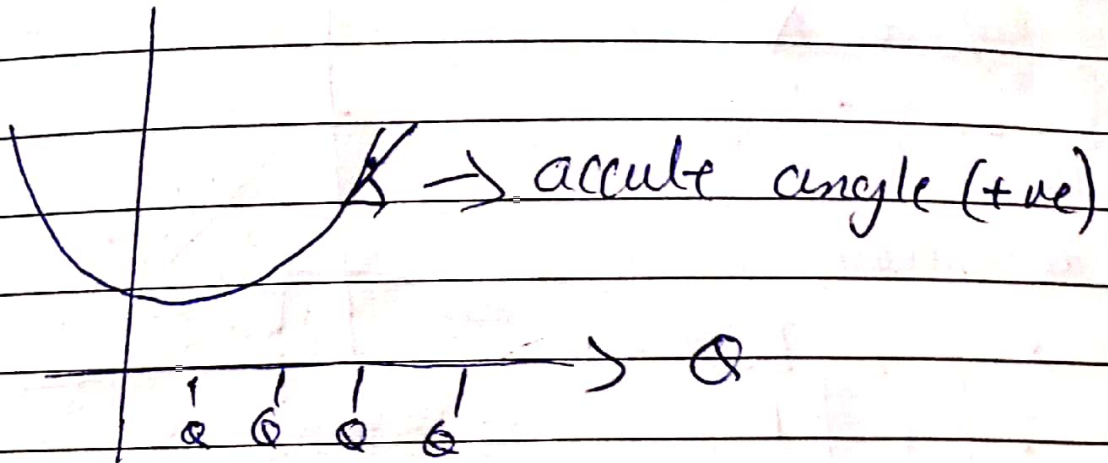 → accute angle (+ve)
Q
Q Q Q Q